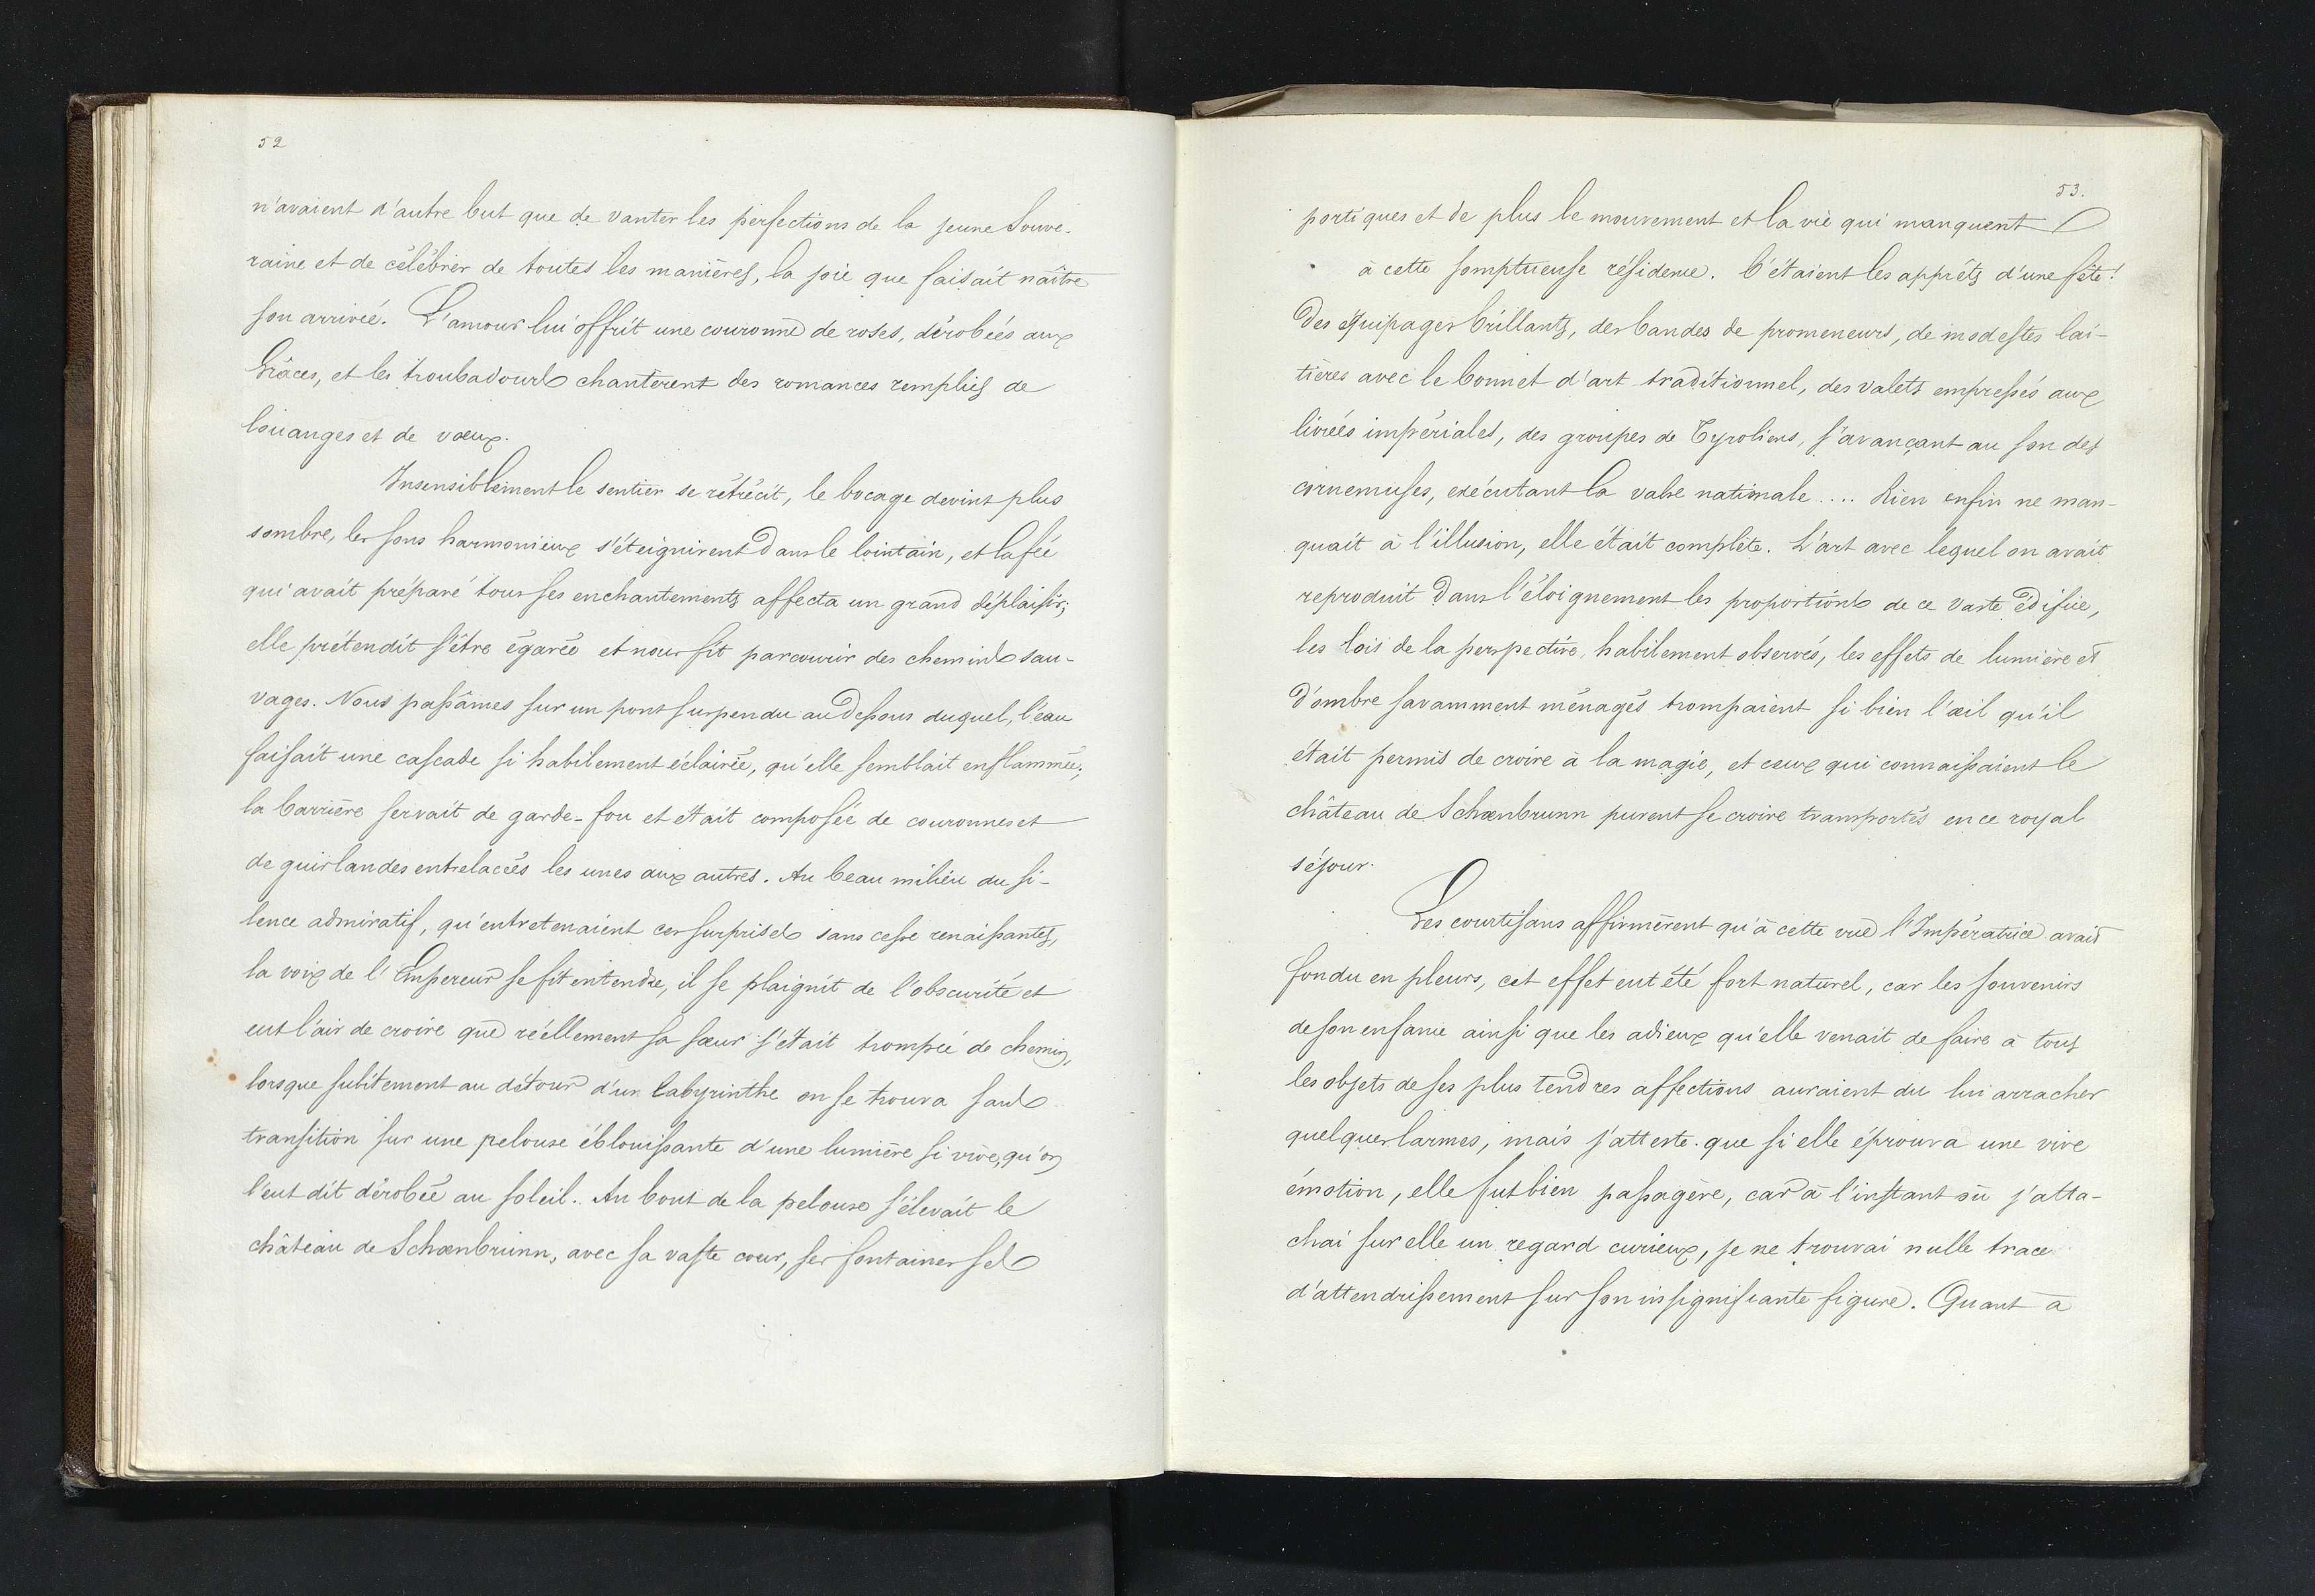 52
n'avaient d'autre but que de vanter les perfections de la jeune Souve-
raine et de célébrer de toutes les manières, la joie que faisait naître
son arrivée. L'amour lui offrit une couronne de roses, dérobées aux
Grâces, et les troubadours chantèrent des romances remplies de
louanges et de vœux.
Insensiblement le sentier se rétrécit, le bocage devint plus
sombre, les sons harmonieux s'éteignirent dans le lointain, et la fée
qui avait préparé tous ses enchantements affecta un grand déplaisir;
elle prétendit s'être égarée et nous fit parcourir des chemins sau-
vages. Nous passâmes sur un pont suspendu au dessous duquel, l'eau
faisait une cascade si habilement éclairée, qu'elle semblait enflammée;
la barrière servait de garde-fou et était composée de couronnes et
de guirlandes entrelacées les unes aux autres. Au beau milieu du si-
lence admiratif, qu'entretenaient ces surprises sans cesse renaissantes,
la voix de l'Empereur se fit entendre, il se plaignit de l'obscurité et
eut l'air de croire que réellement sa sœur s'était trompée de chemin,
lorsque subitement au détour d'un labyrinthe on se trouva sans
transition sur une pelouse éblouissante d'une lumière si vive, qu'on
l'eut dit dérobée au soleil. Au bout de la pelouse s'élevait le
château de Schœnbrunn, avec sa vaste cour, ses fontaines ses
53.
portiques et de plus le mouvement et la vie qui manquent
à cette somptueuse résidence. C'étaient les apprêts d'une fête!
Des équipages brillants, des bandes de promeneurs, de modestes lai-
tières avec le bonnet d'art traditionnel, des valets empressés aux
livrées impériales, des groupes de Tyroliens, s'avançant au son des
cornemuses, exécutant la valse nationale.... Rien enfin ne man-
quait à l'illusion, elle était complète. L'art avec lequel on avait
reproduit dans l'éloignement les proportions de ce vaste édifice,
les lois de la perspective, habilement observés, les effets de lumière et
d'ombre savamment ménagés trompaient si bien l'œil qu'il
était permis de croire à la magie, et ceux qui connaissaient le
château de Schœnbrunn purent se croire transportés en ce royal
séjour.
Les courtisans affirmèrent qu'à cette vue l'Impératrice avait
fondu en pleurs, cet effet eut été fort naturel, car les souvenirs
de son enfance ainsi que les adieux qu'elle venait de faire à tous
les objets de ses plus tendres affections auraient du lui arracher
quelques larmes, mais j'atteste que si elle éprouva une vive
émotion, elle fut bien passagère, car à l'instant où j'atta-
chai sur elle un regard curieux, je ne trouvai nulle trace
d'attendrissement sur son insignifiante figure. Quant à